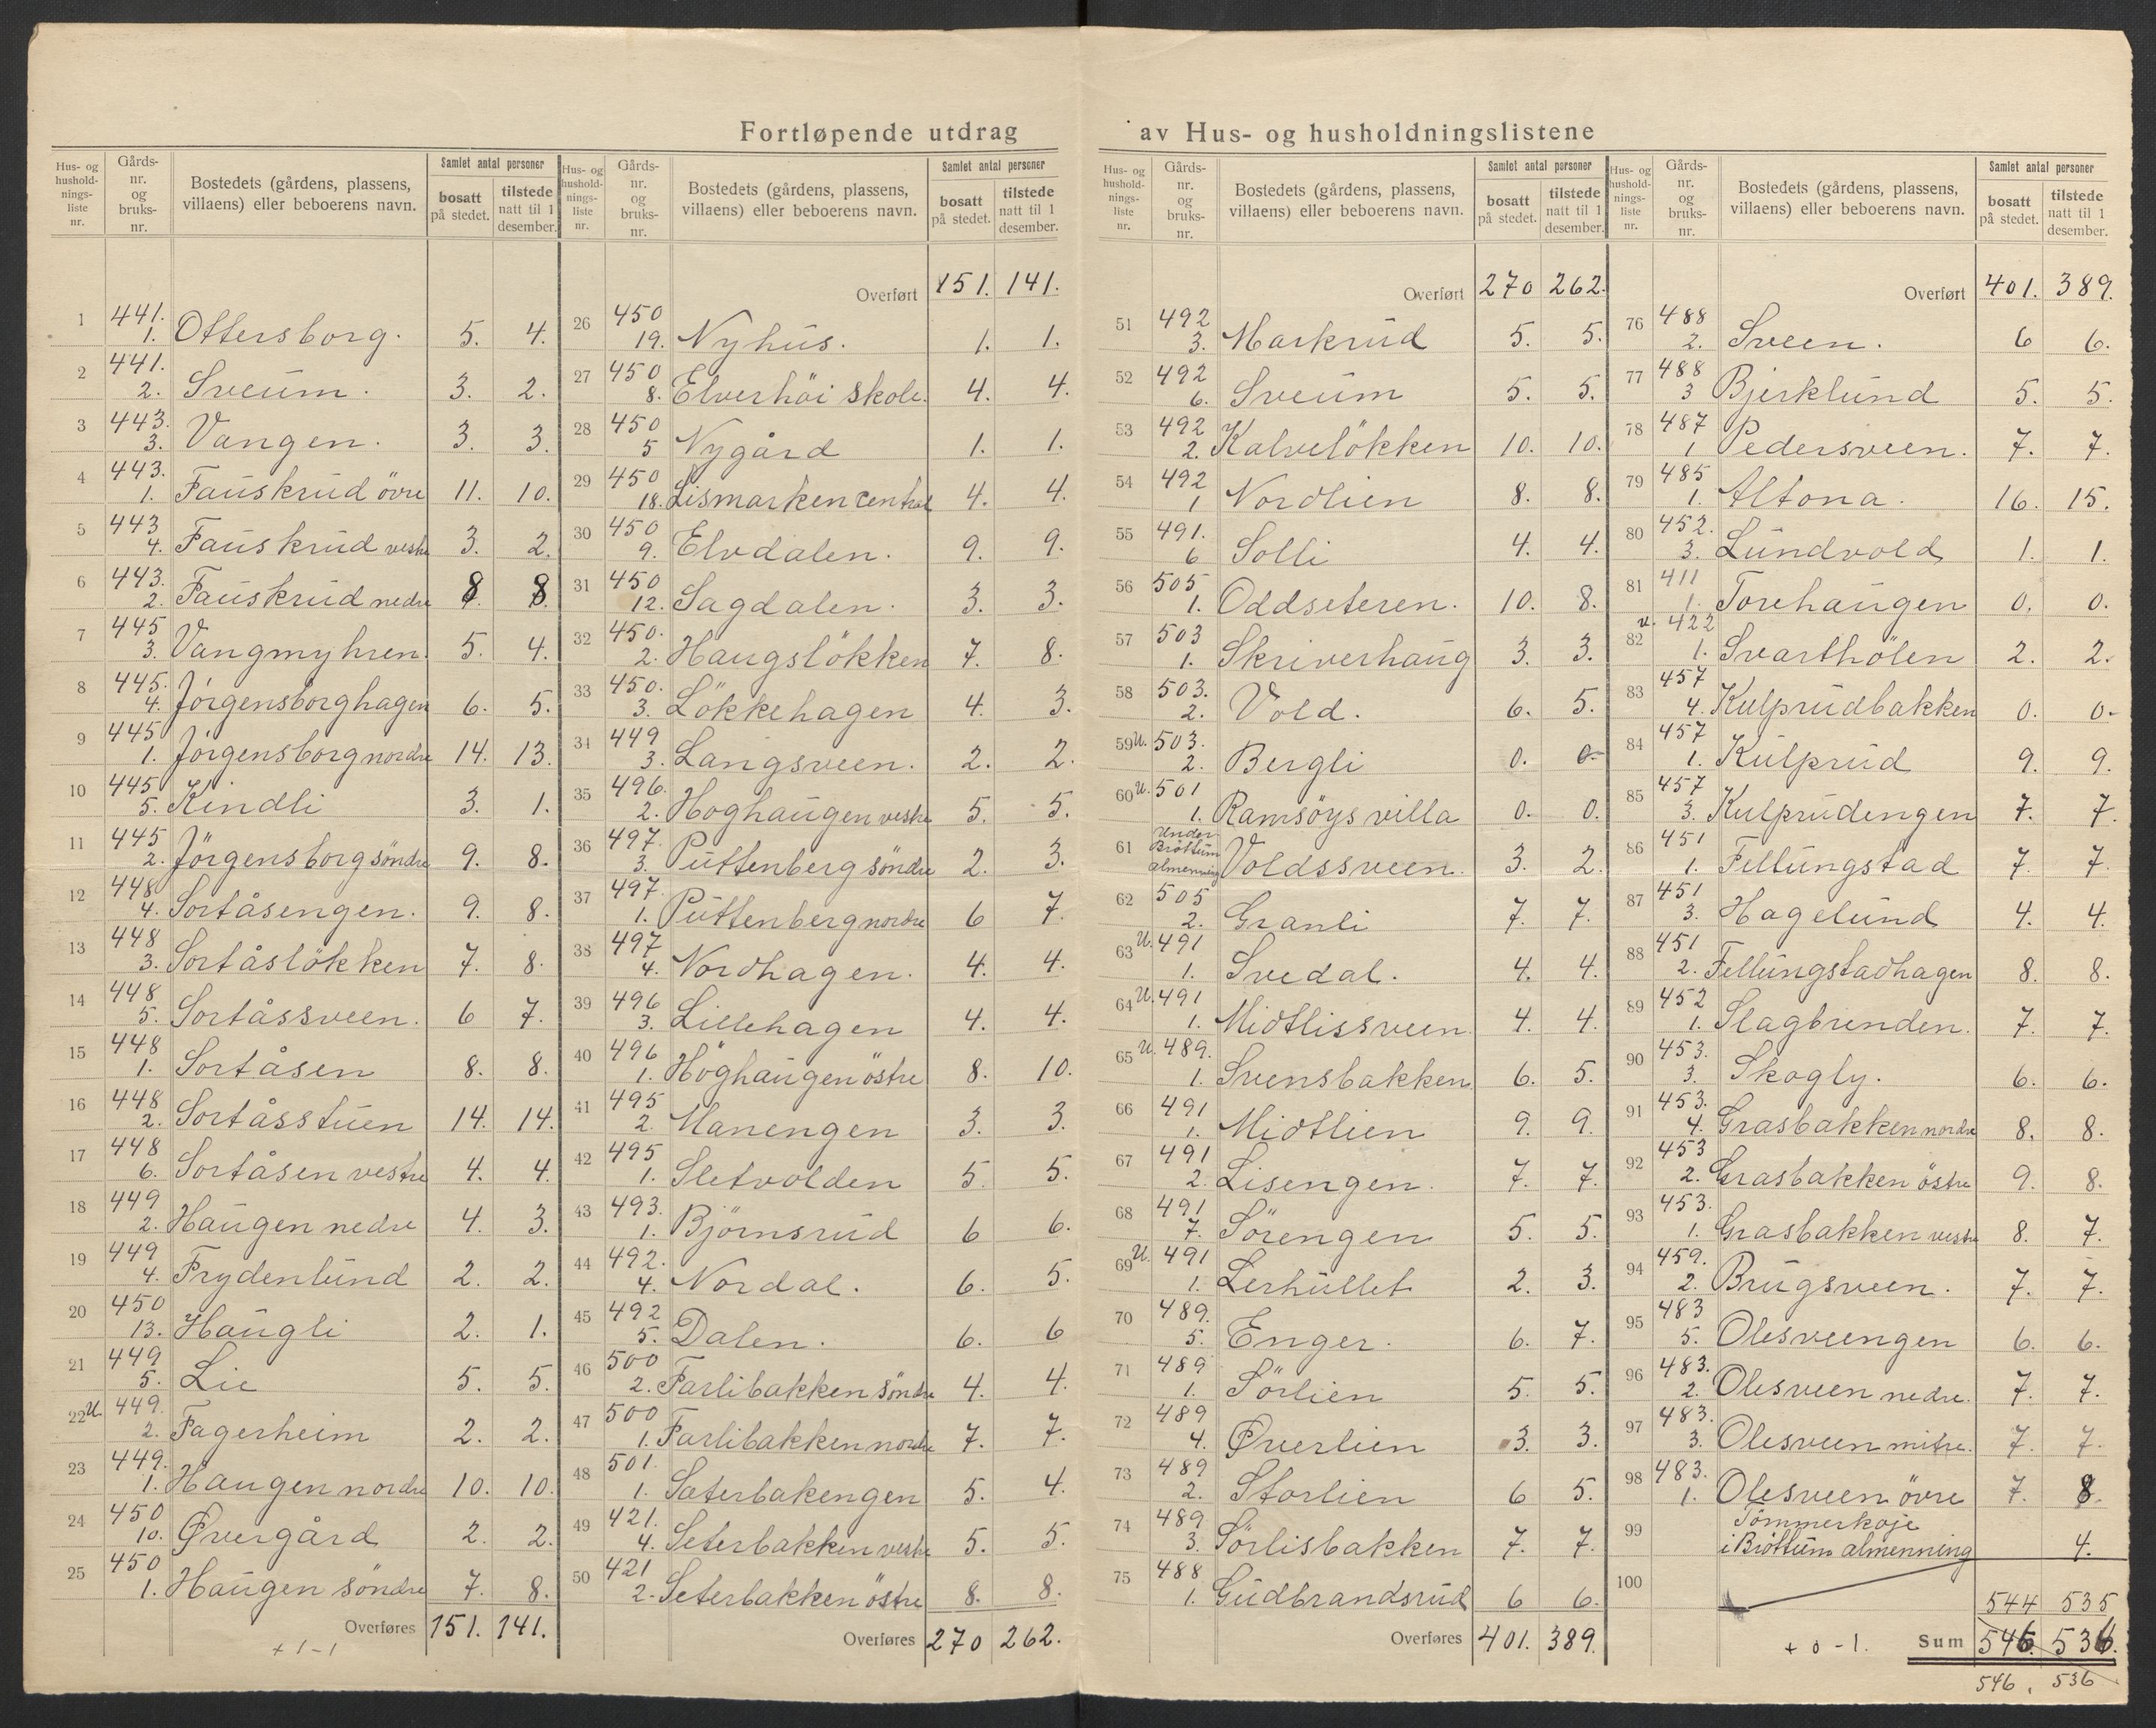 Fortløpende utdrag av Hus- og husholdningslistene
Hus- og husholdnings-liste nr. | Gårds-nr. og bruks-nr. | Bostedets (gårdens, plassens, villaens) eller beboerens navn. | Samlet antal personer | bosatt på stedet. | tilstede natt til 1 desember.
1 441. 1. Ottersborg. 5. 4.
2 441. 2. Sveum. 3. 2.
3 443. 3. Vangen. 3. 3.
4 443. 1. Fauskrud övre 11. 10.
5 443 4. Fauskrud vestre 3. 2.
6 443. 2. Fauskrud nedre 8 8.
7 445 3. Vangmyhren. 5. 4.
8 445. 4. Jörgensborghagen 6. 5.
9 445 1. Jörgensborg nordre 14. 13.
10 445 5. Kindli 3. 1.
11 445 2. Jörgensborg söndre 9. 8.
12 448 4. Sortåsengen. 9. 8.
13 448 3. Sortåslökken 7. 8.
14 448 5. Sortåssveen. 6 7.
15 448 1. Sortåsen 8. 8.
16 448 2. Sortåsstuen 14. 14.
17 448 6. Sortåsen vestre 4. 4.
18 449 2. Haugen nedre 4. 3.
19 449 4. Frydenlund 2. 2.
20 450 13. Haugli 2. 1.
21 449 5. Lie 5. 5.
22 U. 449. 2. Fagerheim 2. 2.
23 449. 1. Haugen nordre 10. 10.
24 450 10. Övergård 2. 2.
25 450 1. Haugen söndre 7. 8.
Overføres 151. 141.
+ 1 - 1
Hus- og husholdnings-liste nr. | Gårds-nr. og bruks-nr. | Bostedets (gårdens, plassens, villaens) eller beboerens navn. | Samlet antal personer | bosatt på stedet. | tilstede natt til 1 desember.
Overført 151. 141.
26 450 19. Nyhus. 1. 1.
27 450 8. Elverhöi skole. 4. 4.
28 450 5 Nygård 1. 1.
29 450 18. Lismarken central 4. 4.
30 450 9. Elvdalen. 9. 9.
31 450 12. Sagdalen. 3. 3.
32 450. 2. Haugslökken 7. 8.
33 450. 3. Lökkehagen 4. 3.
34 449 3. Langsveen. 2. 2.
35 496. 2. Höghaugen vestre 5. 5.
36 497. 3. Puttenberg söndre 2. 3.
37 497. 1. Puttenberg nordre 6 7.
38 497 4. Nordhagen. 4. 4.
39 496 3. Lillehagen 4. 4.
40 496 1. Höghaugen östre 8. 10.
41 495 2. Manengen 3. 3.
42 495 1. Sletvolden 5 5.
43 493. 1. Björnsrud 6 6.
44 492. 4. Nordal. 6. 5.
45 492 5. Dalen. 6. 6
46 500 2. Farlibakken söndre 4. 4.
47 500 1. Farlibakken nordre 7. 7.
48 501. 1. Sæterbakengen 5. 4.
49 421. 4. Seterbakken vestre 5. 5.
50 421 2. Seterbakken östre 8. 8.
Overføres 270 262.
Hus- og husholdnings-liste nr. | Gårds-nr. og bruks-nr. | Bostedets (gårdens, plassens, villaens) eller beboerens navn. | Samlet antal personer | bosatt på stedet. | tilstede natt til 1 desember.
Overført 270 262.
51 492 3. Markrud 5. 5.
52 492 6. Sveum 5. 5.
53 492 2. Kalvelökken 10. 10.
54 492 1 Nordlien 8. 8.
55 491. 6 Solli 4. 4.
56 505 1. Oddseteren. 10. 8.
57 503 1. Skriverhaug 3. 3.
58 503. 2. Vold. 6. 5.
59 U. 503. 2. Bergli 0. 0-
60 U. 501 1. Ramsöys villa 0. 0.
61 Under Bröttum almenning Voldssveen. 3. 2.
62 505 2. Granli 7. 7.
63 U. 491 1. Svedal. 4. 4.
64 U. 491 1. Midtlissveen. 4. 4.
65 U. 489. 1. Svensbakken. 6. 5.
66 491 1. Midtlien 9. 9.
67 491 2. Lisengen. 7. 7.
68 491 7. Sörengen 5. 5.
69 U. 491 1. Lerhullet 2. 3.
70 489. 5. Enger. 6. 7.
71 489 1. Sörlien 5. 5.
72 489 4. Överlien 3. 3.
73 489 2. Storlien 6 5.
74 489 3. Sörlisbakken 7. 7.
75 488 1. Gudbrandsrud 6 6.
Overføres 401. 389.
Hus- og husholdnings-liste nr. | Gårds-nr. og bruks-nr. | Bostedets (gårdens, plassens, villaens) eller beboerens navn. | Samlet antal personer | bosatt på stedet. | tilstede natt til 1 desember.
Overført 401. 389.
76 488 2. Sveen. 6 6.
77 488 3 Bjerklund 5. 5.
78 487 1 Pedersveen. 7. 7.
79 485 1. Altona. 16. 15.
80 452. 3. Lundvold 1. 1.
81 411 1. Torehaugen 0. 0.
82 u. 422 1. Svartholen 2. 2.
83 457 4. Kulprudbakken 0. 0-
84 457 1. Kulprud 9. 9.
85 457 3. Kulprudengen 7. 7.
86 451 1. Fellungstad 7. 7.
87 451 3. Hagelund 4. 4.
88 451 2. Fellungstadhagen 8. 8.
89 452 1. Slagbrenden. 7. 7.
90 453. 3. Skogly. 6. 6.
91 453. 4. Grasbakken nordre 8. 8.
92 453 2. Grasbakken östre 9. 8.
93 453. 1. Grasbakken vestre 8. 7.
94 459. 2. Brugsveen. 7. 7.
95 483 5. Olesveengen 6. 6.
96 483. 2. Olesveen nedre. 7. 7.
97 483. 3. Olesveen mitre. 7. 7.
98 483. 1. Olesveen övre 7. 8.
99 Tömmerkoje i Bröttum almenning 4.
100
544 535
+ 0 - 1. Sum 546. 536.
546, 536